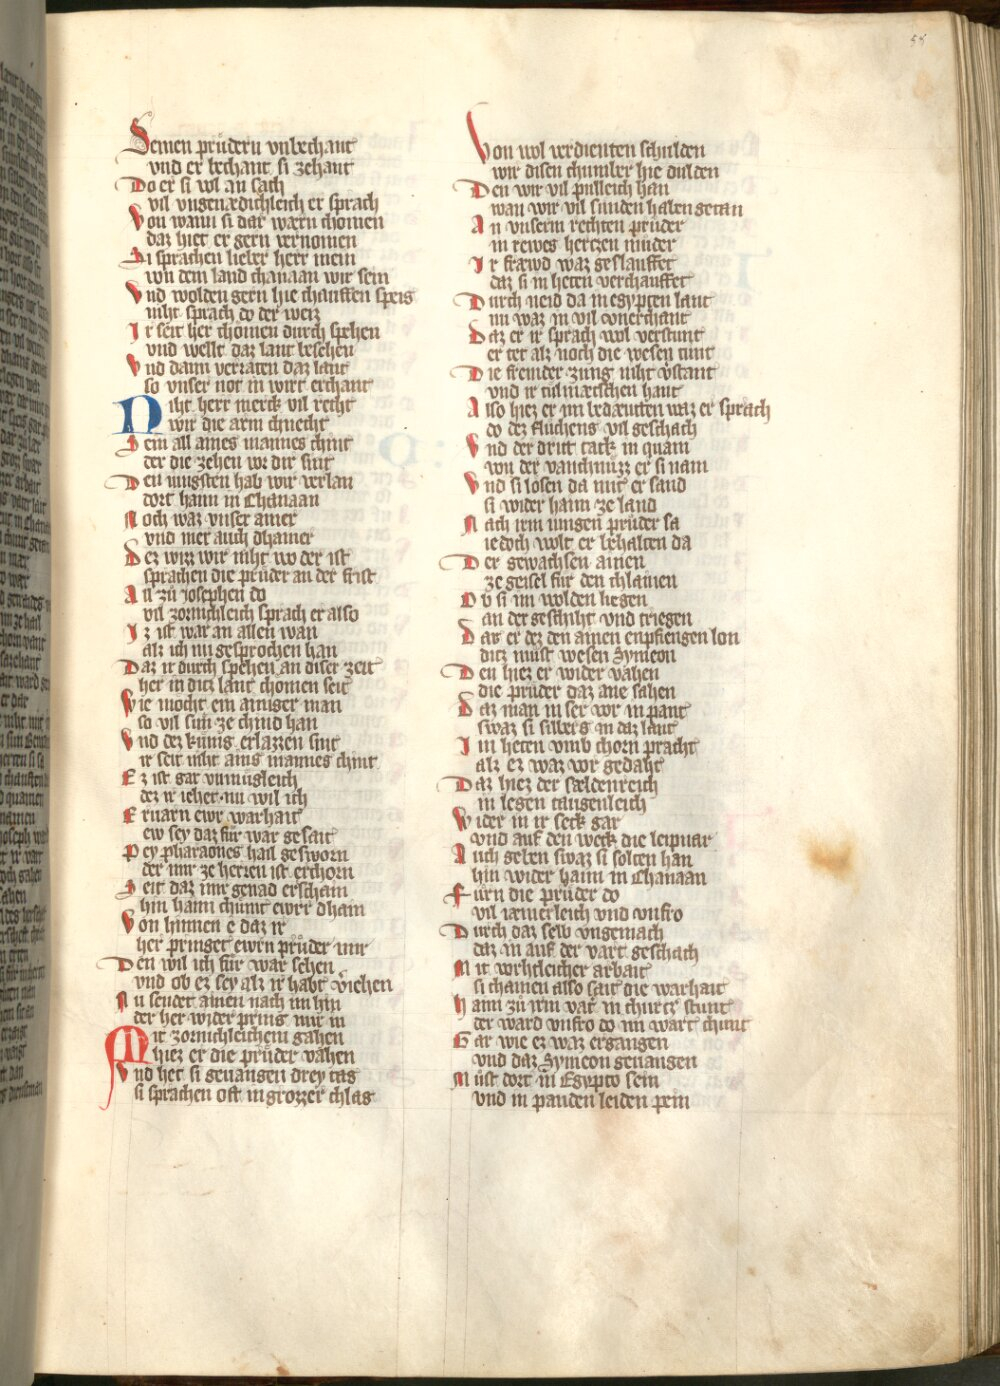 55
Seinen prüdern vnbechant
vnd er bechant si zehant
Do er si wol an sach
vil vngenædichleich er sprach
Von wann si dar wærn chomen
daz hiet er gern vernomen
Si sprachen lieber herr mein
von dem land chanaan wir sein
Vnd wolden gern hie chauffen speis
niht sprach do der weiz
Ir seit her chomen durch spehen
vnd wellt daz lant besehen
Vnd dann verraten daz lant
so vnser not in wirt erchant
Niht herr merck vil recht
wir die arm chnecht
Sein all aines mannes chint
der die zehen vor dir sint
Den iungsten hab wir verlan
dort haim in Chanaan
Noch waz vnser ainer
vnd mer auch dhainer
Dez wizz wir niht wo der ist
sprachen die prüder an der frist
An zů iosephen do
vil zornichleich sprach er also
Iz ist war an allen wan
alz ich nu gesprochen han
Daz ir durch spehen an diser zeit
her in ditz lant chomen seit
Wie mocht ein ainiger man
so vil sün ze chind han
Vnd dez künig erlazzen sint
ir seit niht ains mannes chint
Ez ist gar vnmügleich
dez ir iehet nu wil ich
Eruarn ewr warhait
ew sey daz für war gesait
Pey pharaones hail gesworn
der mir ze herren ist erchorn
Seit daz mir genad erschain
hin haim chümt ewrr dhain
Von hinnen e daz ir
her pringet ewrn prüder mir
Den wil ich für war sehen
vnd ob ez sey alz ir habt veriehen
Nu sendet ainen nach im hin
der her wider pring mir in
Mit zornichleichem gahen
hiez er die prüder vahen
Vnd het si geuangen drey tag
si sprachen oft in grozzer chlag
Von wol verdienten schulden
wir disen chumber hie dulden
Den wir vil pilleich han
wan wir vil sünden haben getan
An vnserm rechten prüder
in rewes hertzen müder
Ir fræwd waz geslauffet
daz si in heten verchauffet
Durch neid da in egypten lant
nu waz in vil vnerchant
Daz er ir sprach wol verstunt
er tet alz noch die wesen tunt
Die fremder zung niht verstant
vnd ir tülmætschen hant
Also hiez er im bedæutten waz er sprach
do dez flůchens vil geschach
Vnd der drit tack in quam
von der vanchnüzz er si nam
Vnd si losen da mit er sand
si wider haim ze land
Nach irm iungen prüder sa
iedoch wolt er behalten da
Der gewachsen ainen
ze geisel für den chlainen
Ob si im wolden liegen
an der geschiht vnd triegen
Daz er dez den ainen enpfiengen lon
ditz můst wesen Symeon
Den hiez er wider vahen
die prüder daz ane sahen
Daz man in ser vor in pant
swaz si silbers in daz lant
In heten vmb chorn pracht
alz ez waz vor gedaht
Daz hiez der sældenreich
in legen taugenleich
Wider in ir seck gar
vnd auf den weck die leipnar
Auch geben swaz si solten han
hin wider haim in Chanaan
Fürn die prüder do
vil iæmerleich vnd vnfro
Durch daz selb vngemach
daz in auf der vart geschach
Mit vorhtleicher arbait
si chamen also sait die warhait
Haim zů irm vatter in churtzer stunt
der ward vnfro do im wart chunt
Gar wie ez waz ergangen
vnd daz Symeon geuangen
Můst dort in Egypto sein
vnd in panden leiden pein